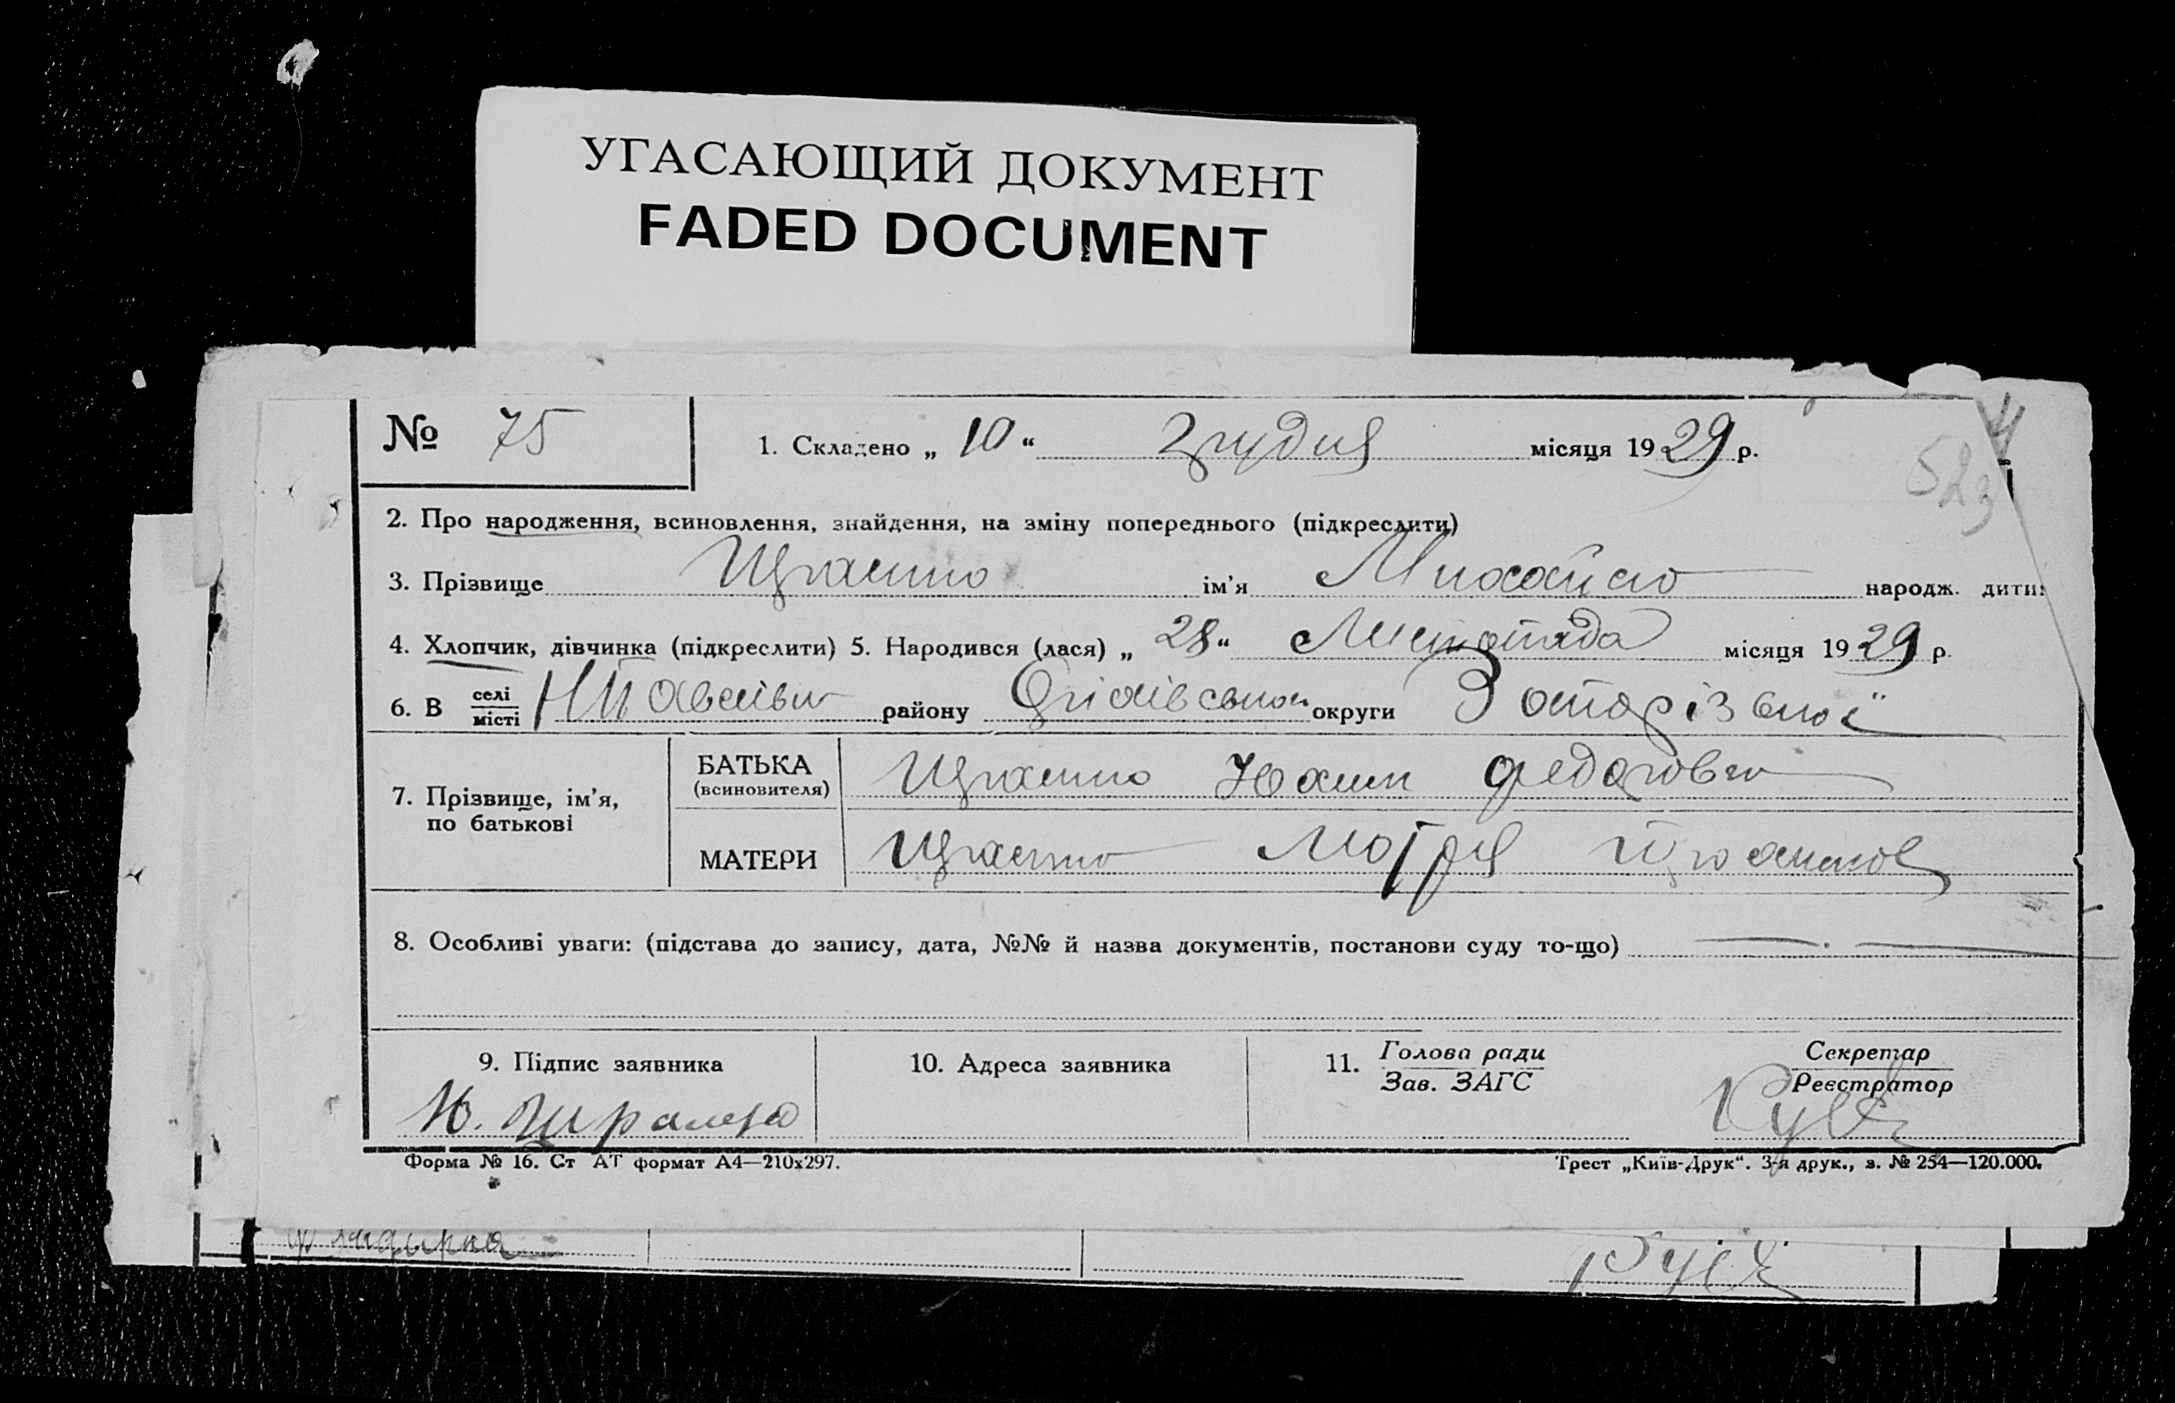 УГАСАЮЩИЙ ДОКУМЕНТ
FADED DOCUMENT
№ 75
1. Складено „ 10 “ Грудня місяця 1929 р.
523
2. Про народження, всиновлення, знайдення, на зміну попереднього (підкреслити)
3. Прізвище ім’я Михайло народж. дити
4. Хлопчик, дівчинка (підкреслити) 5. Народився (лася) „ 28 “ Листопада місяця 1929 р.
6. В селі
місті району округи Запорізької
7. Прізвище, ім’я,
по батькові
БАТЬКА
(всиновителя)
Федорович
МАТЕРИ
Мотря
8. Особливі уваги: (підстава до запису, дата, №№ й назва документів, постанови суду то-що)
9. Підпис заявника
10. Адреса заявника
11. Голова ради
Зав. ЗАГС
Секретар
Реєстратор
Форма № 16. Ст АТ формат А4—210х297.
Трест „Київ-Друк“. 3-я друк., з. № 254—120.000.